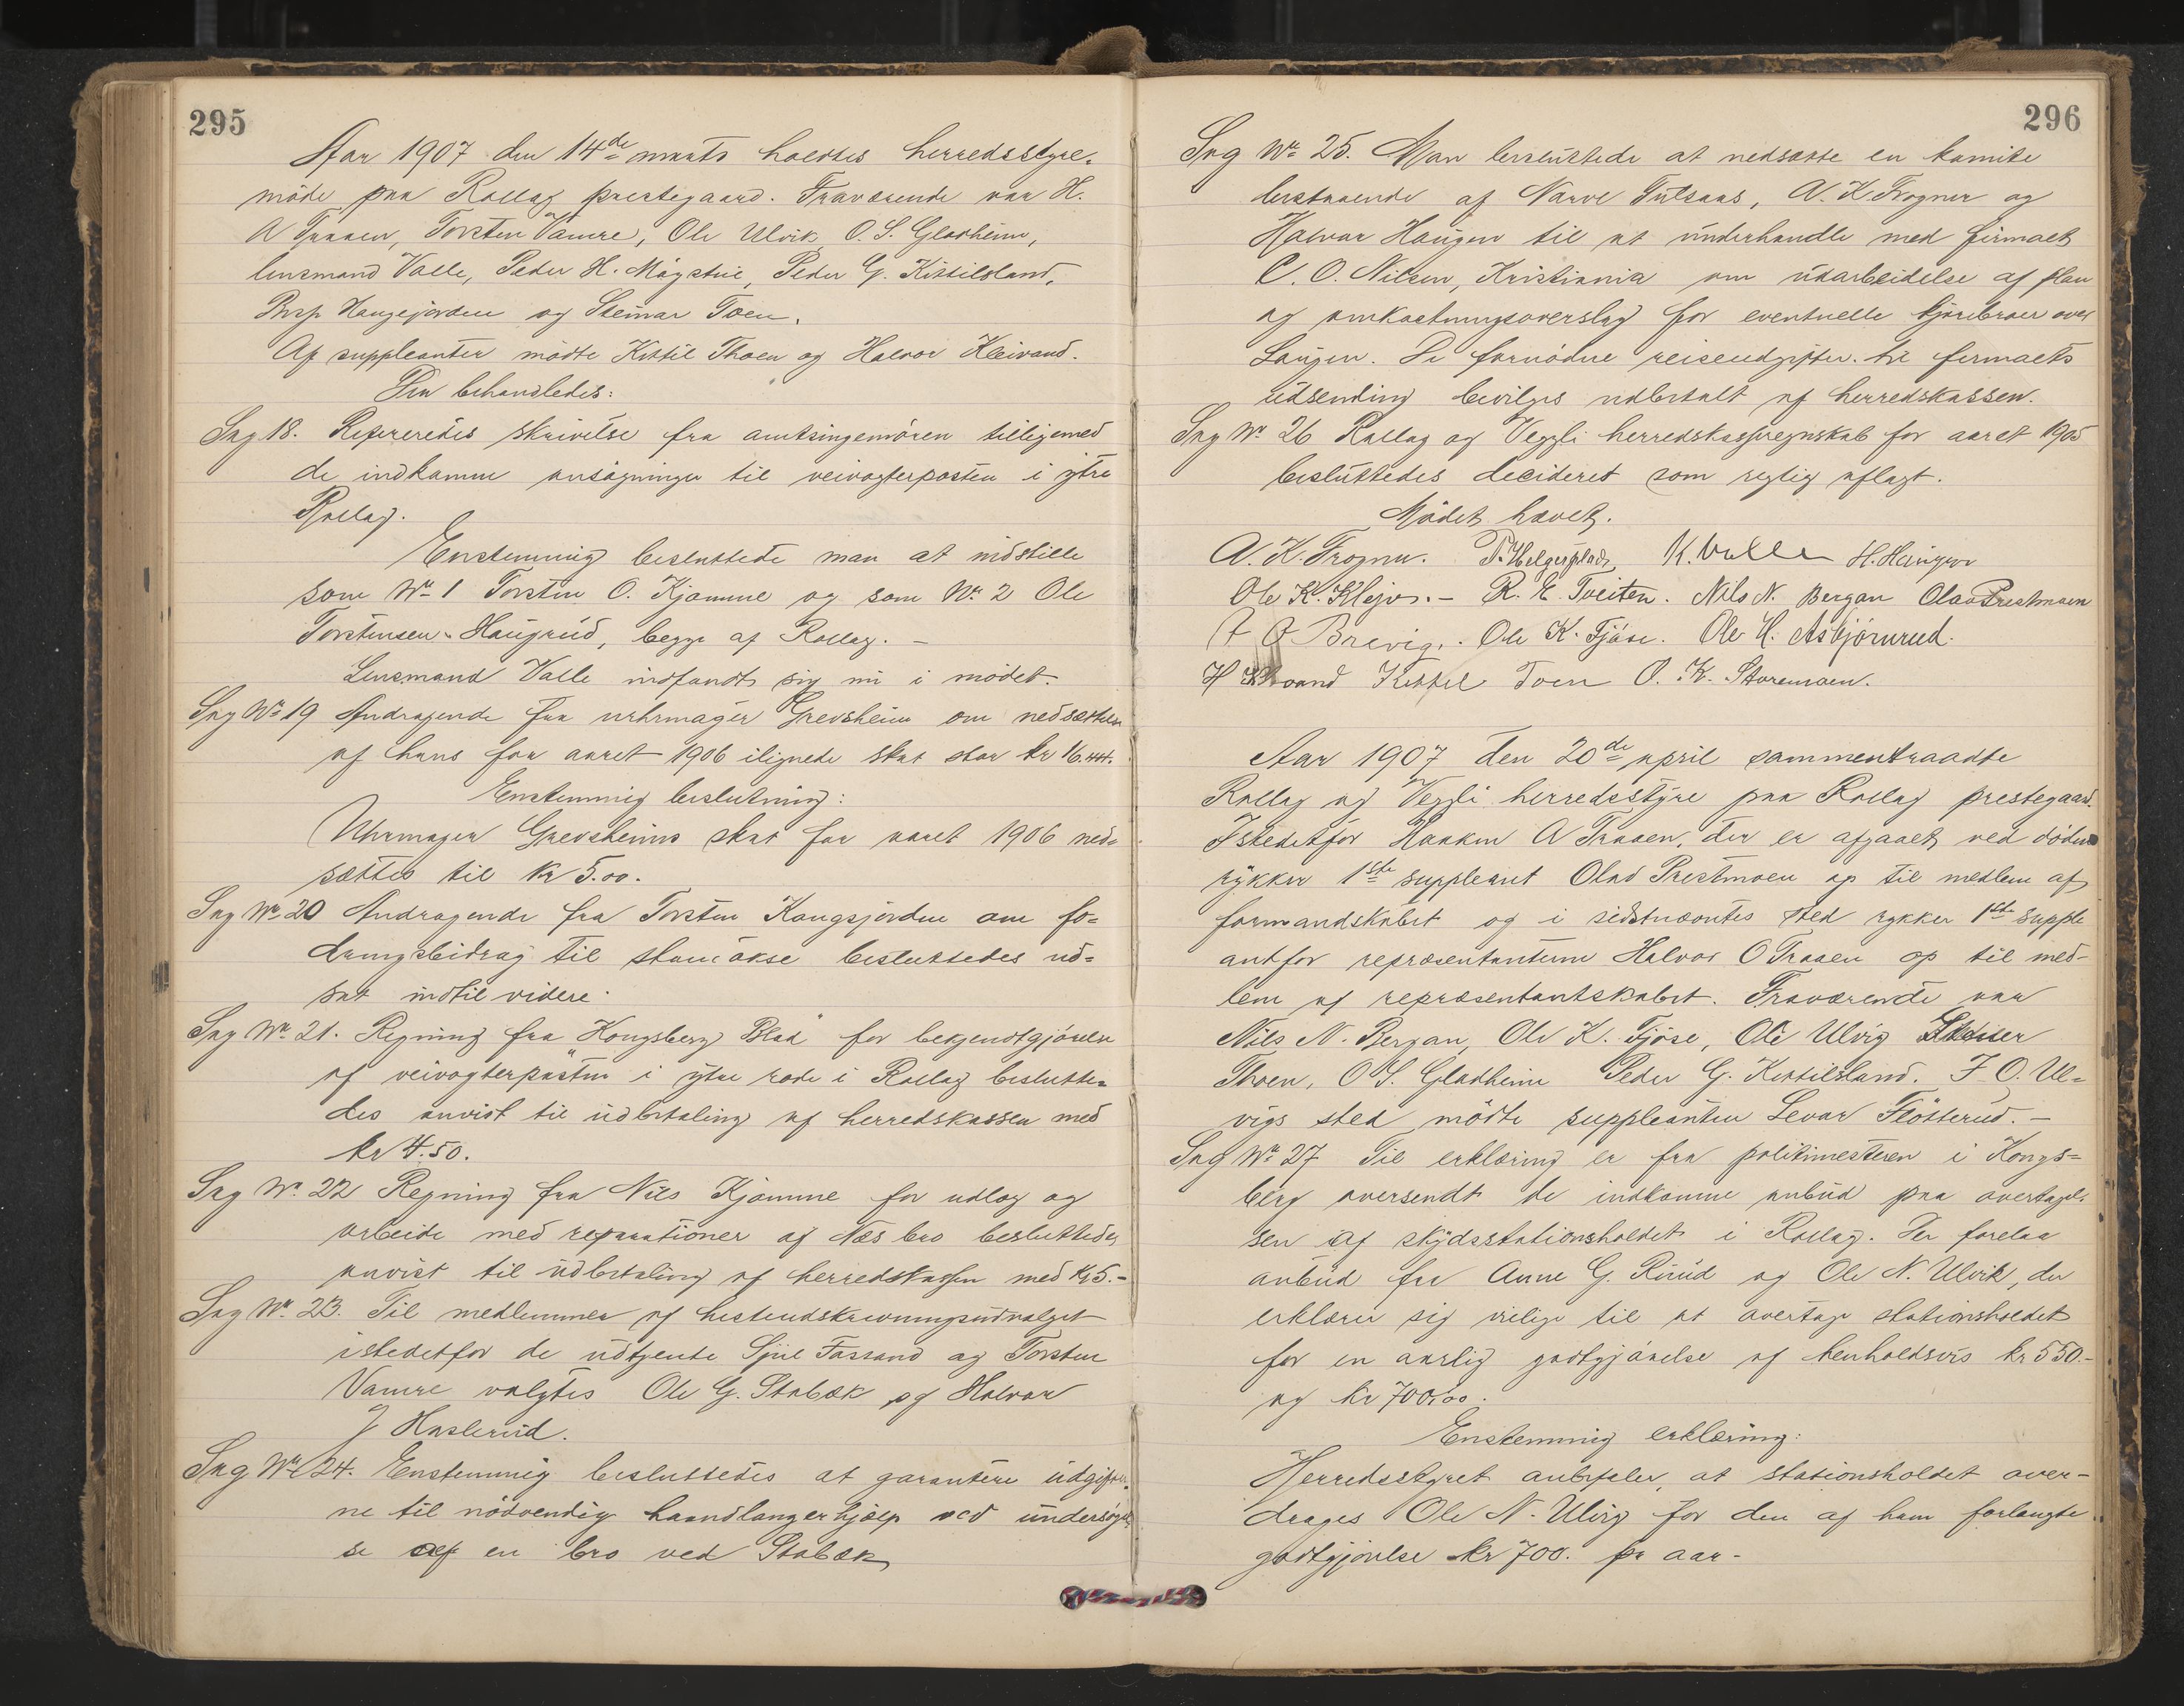 295
Aar 1907 den 14de marts holdtes herredsstyre-
møde paa Rollag prestegaard. Fraværende var H.
A Traaen, Torsten Vamre, Ole Ulvik, O. S. Gladheim,
lensmand Valle, Peder H. Peder G. Kittilsland,
Haugejorden og Steinar Toen.
Af suppleanter mødte Kittil Thoen og Halvor Kleivand.
Der behandledes:
Sag 18. Refereredes skrivelse fra amtsingeniøren tilligemed
de indkomne ansøgninger til veivogterposten i ytre
Rollag.
Enstemmig besluttede man at indstille
som No 1 Torsten O. Kjomme og som No 2 Ole
Torstensen Haugrud, begge af Rollag. -
Lensmand Valle indfandt sig nu i mødet.
Sag No 19 Andragende fra urhmager Grevsheim om nedsættelse
af hans for aaret 1906 ilignede skat stor kr 16.44.
Enstemmig beslutning:
Uhrmager Grevsheims skat for aaret 1906 ned-
sættes til kr 5.00.
Sag No 20 Andragende fra Torsten Kongsjorden om fo-
dringsbidrag til stamokse besluttedes ud-
sat indtil videre.
Sag No 21. Regning fra "Kongsberg Blad" for bekjendtgjørelse
af veivogterposten i ytre rode i Rollag beslutte-
des anvist til udbetaling af herredskassen med
kr 4.50.
Sag No 22 Regning fra Nils Kjomme for udlæg og
arbeide med reparationer af Næs bro besluttedes
anvist til udbetaling af herredskassen med kr 5.-
Sag No 23. Til medlemmer af hesteudskrivningsudvalget
istedetfor de udtjente Sjul Fossand og Torsten
Vamre valgtes Ole G. Stabæk og Halvor
J Haslerud.
Sag No 24. Enstemmig besluttedes at garantere udgifter-
ne til nødvendig haandlangerhjælp ved undersøgel-
se af en bro ved Stabæk
296
Sag No 25. Man besluttede at nedsætte en komite
bestaaende af Narve Tutsaas, A. K. Frogner og
Halvor Haugen til at underhandle med firmaet
C. O. Nilsen, Kristiania om udarbeidelse af plan
og omkostningsoverslag for eventuelle kjørebroer over
Laugen. De fornødne reiseudgifter firmaets
udsending bevilges udbetalt af herredskassen.
Sag No 26 Rollag og Veggli herredskasseregnskab for aaret 1905
besluttedes decideret som rigtig aflagt.
Mødet hævet.
A. K. Frogner. T. Helgesplads K. Valle H. Haugen
Ole K. Klejvs. - R. E. Tveiten. Nils N. Bergan Olav Prestmoen
A O Brevig. Ole K. Fjøse. Ole H. Asbjørnrud.
H Kittil Toen O. K. Storemoen.
Aar 1907 den 20de april sammentraadte
Rollag og Veggli herredsstyre paa Rollag prestegaard.
Istedetfor Haaken A Traaen, der er afgaaet ved døden
rykker 1ste suppleant Olav Prestmoen op til medlem af
formandskabet og i sidstnævntes sted rykker 1ste supple
ant for repræsentanterne Halvor O Traaen op til med-
lem af repræsentantskabet. Fraværende var
Nils N. Bergan, Ole K. Fjøse, Ole Ulvig Steiner
Thoen, O S. Gladheim Peder G. Kittilsland. I O. Ul-
vigs sted mødte suppleanten Levor Fløtterud. -
Sag No 27 Til erklæring er fra politimesteren i Kongs-
berg oversendt de indkomne anbud paa overtagel-
sen af skydsstationsholdet i Rollag. Der forelaa
anbud fra Anne G. Ruud og Ole N. Ulvik, der
erklærer sig villige til at overtage stationsholdet
for en aarlig godtgjørelse af henholdsvis kr 550.-
og kr 700.00.
Enstemmig erklæring:
Herredsstyret anbefaler, at stationsholdet over-
drages Ole N. Ulvig for den af ham forlangte
godtgjørelse kr 700. pr aar-